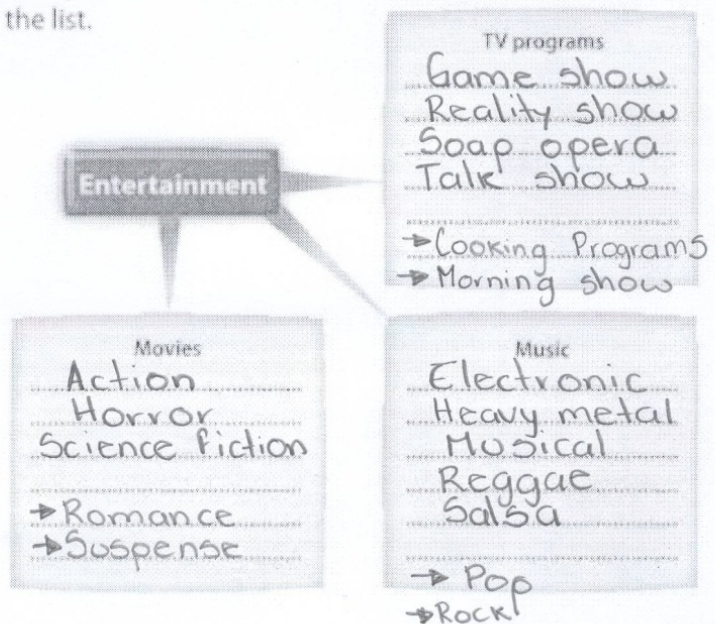 the list.
TV programs
Game show
Reality show
Soap opera
Talk show
→Cooking Programs
→Morning show
Entertainment
Movies
Action
Horror
Science fiction
→Romance
→Suspense
Music
Electronic
Heavy metal
Musical
Reggae
Salsa
→Pop
→Rock